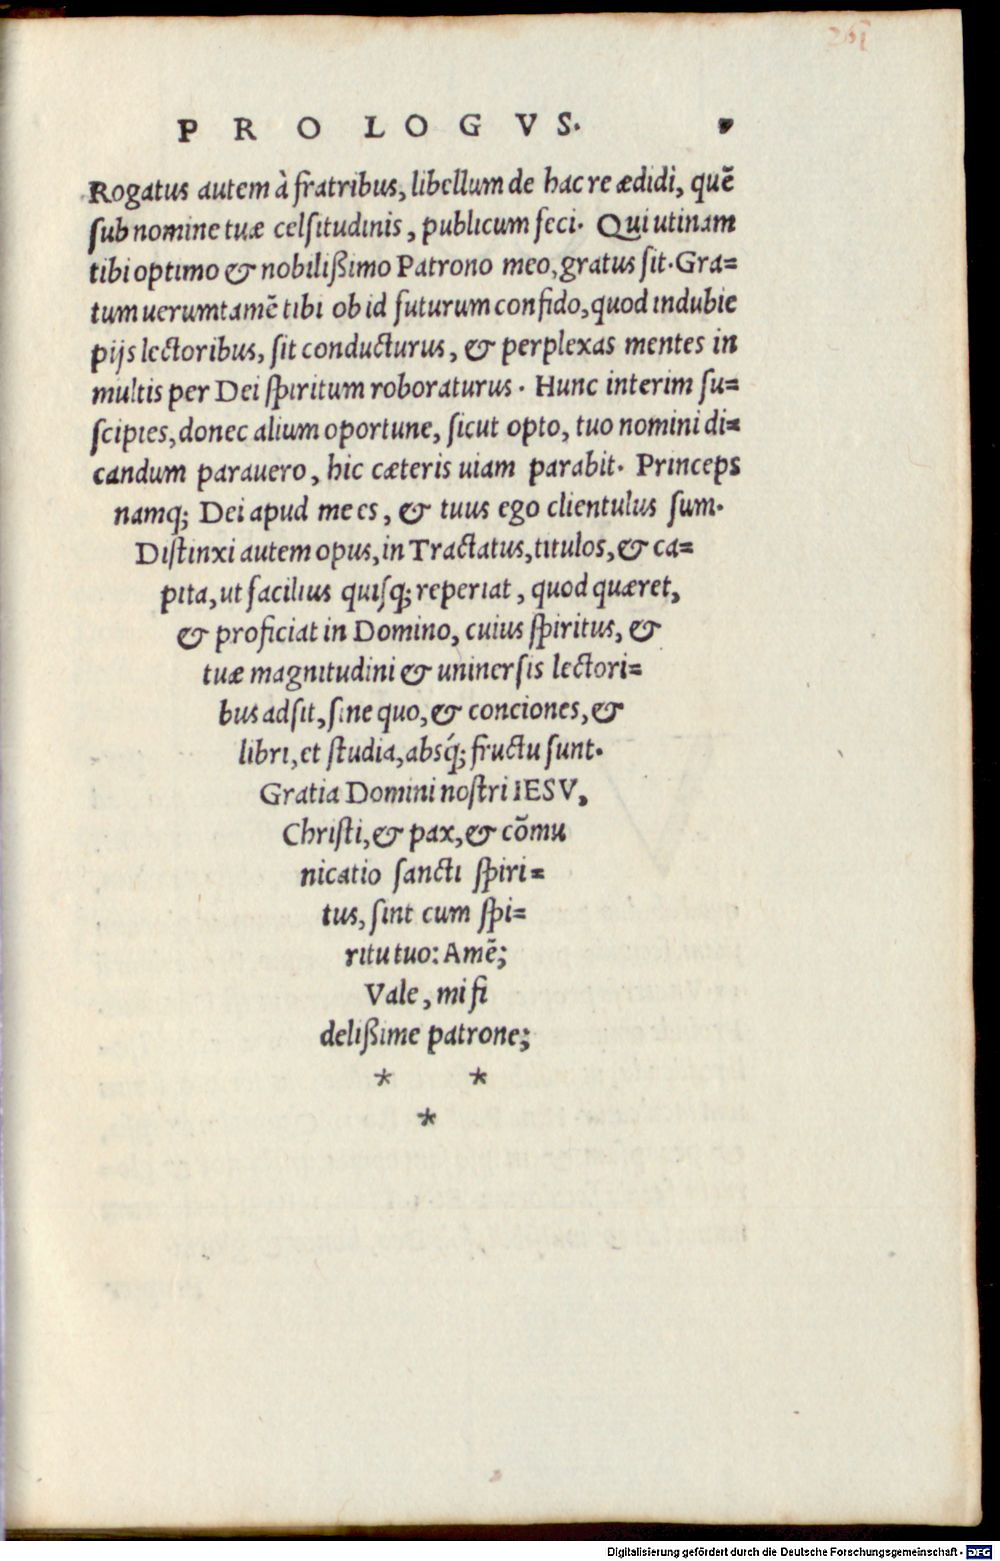 261
PROLOGVS.
Rogatus autem à fratribus, libellum de hac re ædidi, quẽ
sub nomine tuæ celsitudinis, publicum feci. Qui utinam
tibi optimo & nobilißimo Patrono meo, gratus sit. Gra=
tum uerumtamẽ tibi ob id futurum confido, quod indubie
pijs lectoribus, sit conducturus, & perplexas mentes in
multis per Dei spiritum roboraturus. Hunc interim su=
scipies, donec alium oportune, sicut opto, tuo nomini di=
candum parauero, hic cæteris uiam parabit. Princeps
namq; Dei apud me es, & tuus ego clientulus sum.
Distinxi autem opus, in Tractatus, titulos, & ca=
pita, ut facilius quisq; reperiat, quod quæret,
& proficiat in Domino, cuius spiritus, &
tuæ magnitudini & uninersis lectori=
bus adsit, sine quo, & conciones, &
libri, et studia, absq́; fructu sunt.
Gratia Domini nostri IESV,
Christi, & pax, & cõmu
nicatio sancti spiri=
tus, sint cum spi=
ritu tuo: Amẽ;
Vale, mi fi
delißime patrone;
* *
*
Digitalisierung gefördert durch die Deutsche Forschungsgemeinschaft - DFG